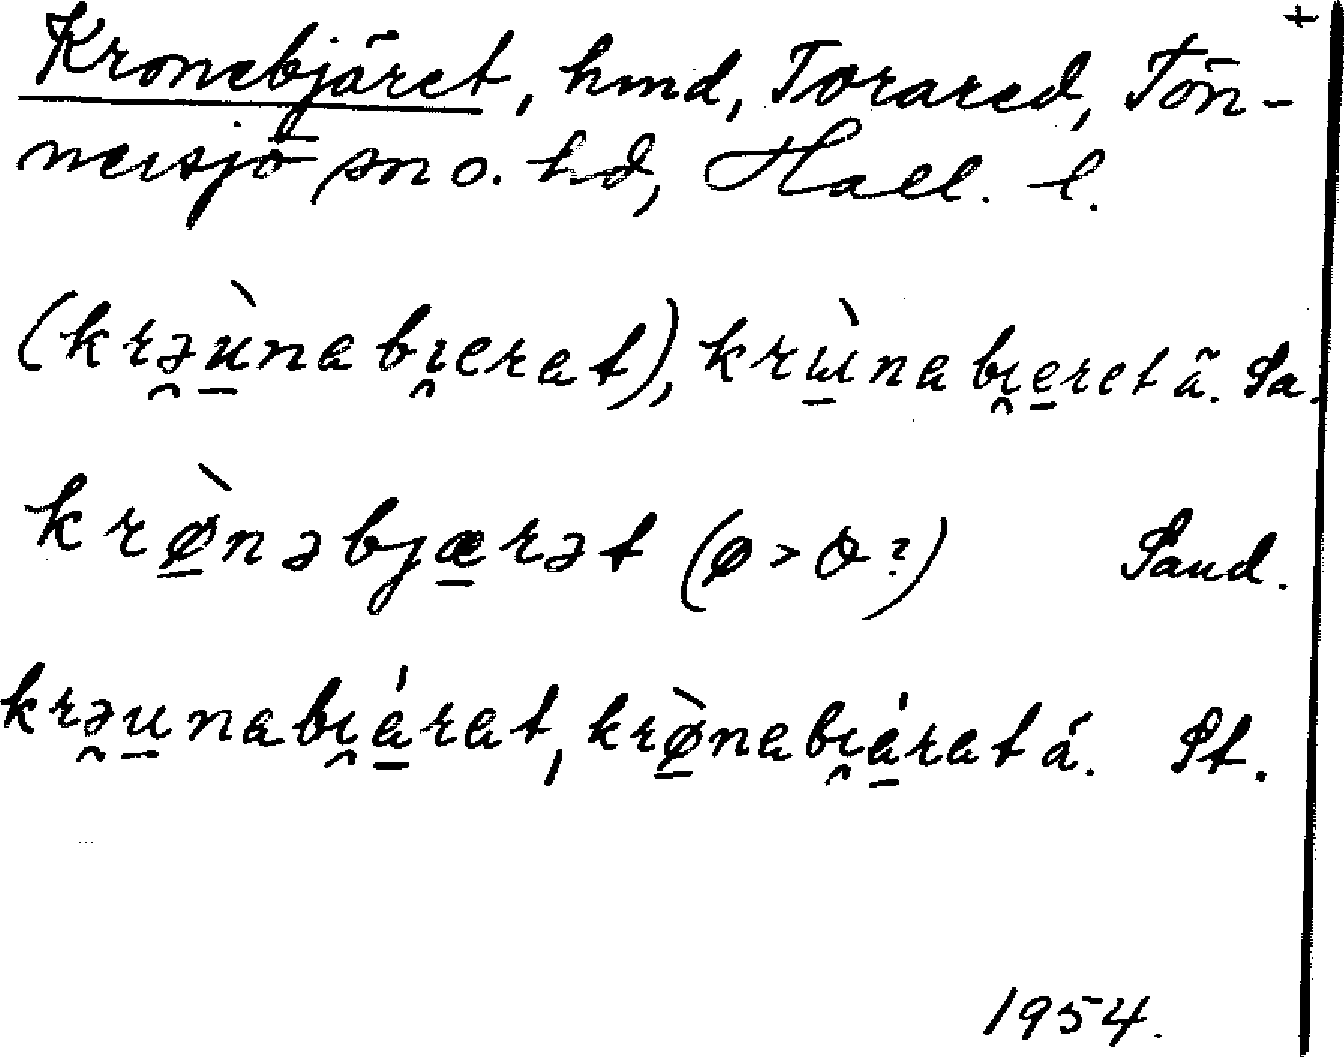 +
Kronebjäret, hmd, Torared, Tön-
nersjö sn o. hd, Hall. l.
(krə̯ù̠nabı̯erat), krɯ̠̀nabı̯e̠ret ã. Sa.
krø̠̀nəbjæ̠rət (ø > ꝋ?) Sand.
krə̯u̠nabı̯á̠rat, krø̠̀nabı̯á̠rat á. St.
1954.